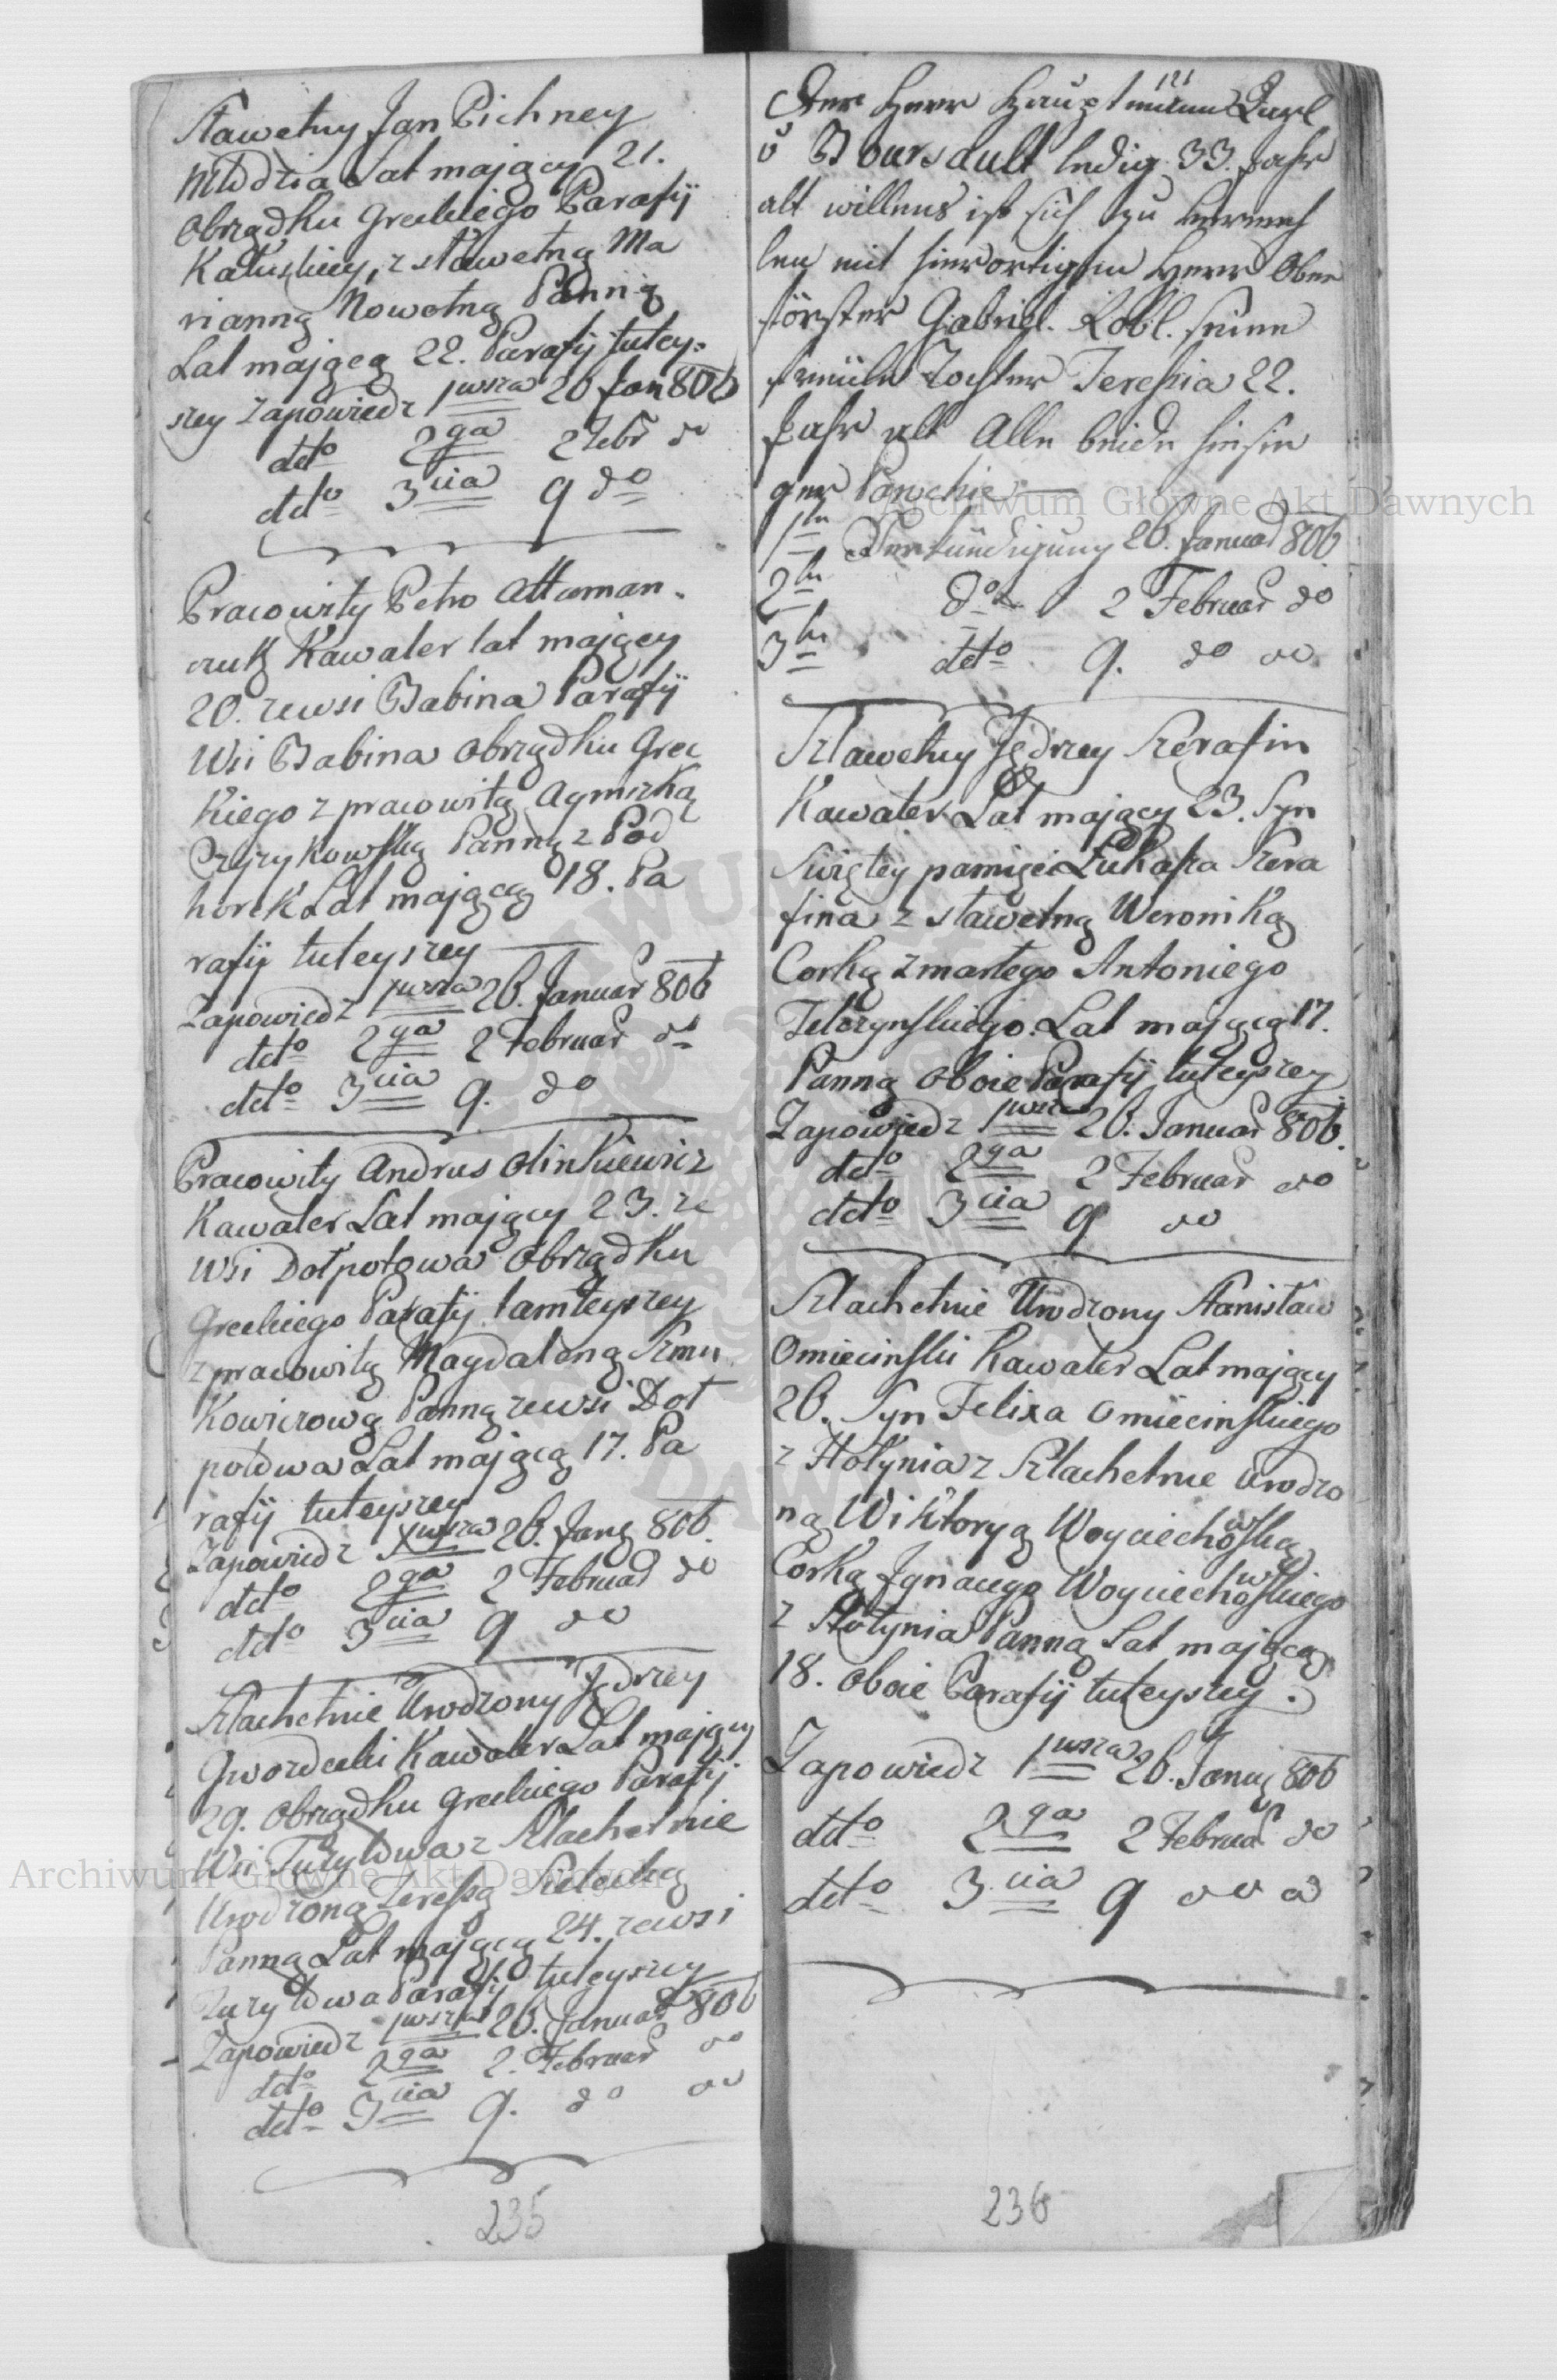 Sławetny Jan Pichney
Młodzia Lat maiący 21.
Obrządku Greckiego Parafij
Kałuskiey, z sławetną Ma
rianną Nowotną Panną
Lat maiącą 22. Parafij tutey-
szey Zapowiedz 1wsza 26 Jan 806
dtto 2ga 2 Febr do
dtto 3cia 9 do
Pracowity Petro Attaman.
czuk Kawaler lat maiący
20. zewsi Babina Parafij
Wsi Babina Obrządku Grec
kiego z pracowitą Agniszką
Panną z Pod
horek Lat maiącą 18. Pa
rafij tuteyszey
Zapowiedz 1wsza 26. Januar 806
dtto 2ga 2 Februar do
dtto 3cia 9. do
Pracowity Andrus Olinkiewicz
Kawaler Lat maiący 23. ze
Wsi Dołpotowa Obrządku
Greckiego Parafij tamteyszey
z pracowitą Magdaleną Szmu
kowiczową Panną zewsi Doł
potowa Lat maiącą 17. Pa
rafij tuteyszey
Zapowiedz 1wsza 26. Jan 806.
dtto 2ga 2 Februar do
dtto 3cia 9 do
Szlachetnie Urodzony Jędrzey
Gwozdecki Kawaler Lat maiący
29. Obrządku Greckiego Parafij
Wsi Tużyłowa z Szlachetnie
Urodzoną Teressą
Panną Lat maiącą 24. zewsi
Tużyłowa Parafij tuteyszey
Zapowiedz 1wsza 26. Januar 806
dtto 2ga 2. Februar do
dtto 3cia 9. do do
235
121
Der Herr Hauptmann Karl
v Boursault ledig 33. Jahr
alt willens ist sich zu vermeh
len mit hierortigem Herr Ober
förster Gabriel. Löbl. seine
Freüle Tochter Teressia 22.
Jahr alt Alle beide hiesie
ger Parochie
1te Verkündigung 26. Januar 806
2te do 2 Februar do
3te dtto 9. do do
Sławetny Jędrzey Szerafin
Kawaler Lat maiący 23. Syn
Swiętey pamięci Łukasza Szera
fina z sławetną Weroniką
Corką zmarłego Antoniego
Telczynskiego. Lat maiącą 17.
Panną oboie Parafij tuteyszey
Zapowiedz 1wsza 26. Januar 806.
dtto 2ga 2 Februar do
dtto 3cia 9 do
Szlachetnie Urodzony Stanisław
Omiecinski Kawaler Lat maiący
26. Syn Felixa Omiecinskiego
z Hołynia z Szlachetnie Urodzo
ną Wiktoryą Woyciechowską
Corką Jgnacego Woyciechowskiego
z Hołynia Panną Lat maiącą
18. oboie Parafij tuteyszey.
Zapowiedz 1wsza 26. Janu 806
dtto 2ga 2 Februar do
dtto 3cia 9 do do
236
Archiwum Główne Akt Dawnych
Archiwum Główne Akt Dawnych